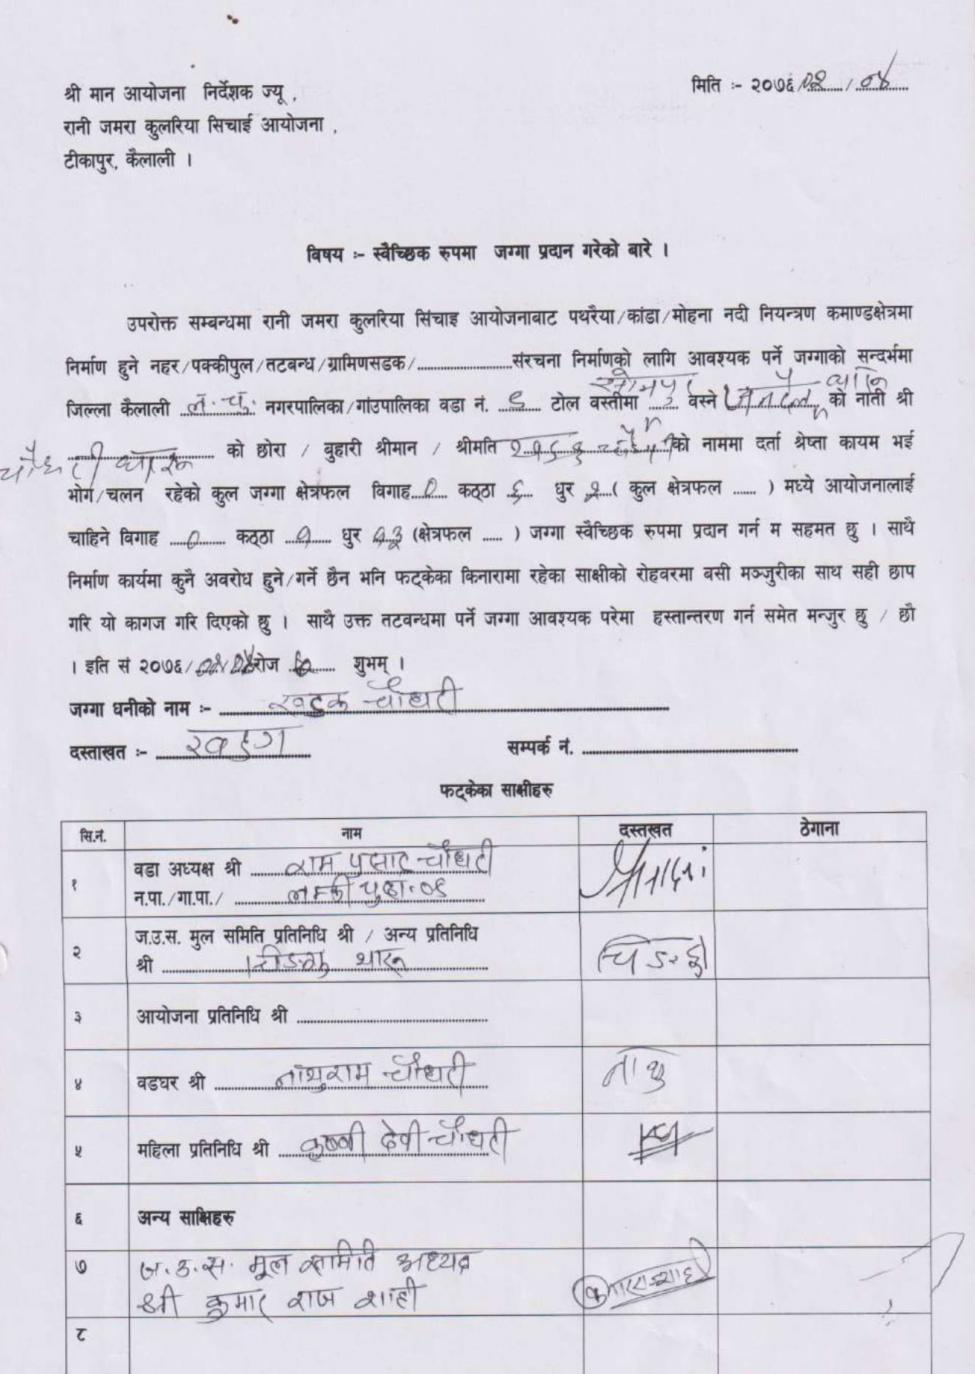 मिति :- २०७६/०२/०४
श्री मान आयोजना निर्देशक ज्यू ,
रानी जमरा कुलरिया सिचाई आयोजना ,
टीकापुर, कैलाली ।
विषय :- स्वैच्छिक रुपमा जग्गा प्रदान गरेको बारे ।
उपरोक्त सम्बन्धमा रानी जमरा कुलरिया सिंचाइ आयोजनाबाट पथरैया/कांडा/मोहना नदी नियन्त्रण कमाण्डक्षेत्रमा
निर्माण हुने नहर/पक्कीपुल/तटबन्ध/ग्रामिणसडक/........................संरचना निर्माणको लागि आवश्यक पर्ने जग्गाको सन्दर्भमा
जिल्ला कैलाली ल. चु. नगरपालिका/गांउपालिका वडा नं. ९ टोल वस्तीमा वस्ने को नाती श्री
को छोरा / बुहारी श्रीमान / श्रीमति को नाममा दर्ता श्रेष्ता कायम भई
भोग/चलन रहेको कुल जग्गा क्षेत्रफल विगाह ० कठ्ठा ६ धुर २ ( कुल क्षेत्रफल ...... ) मध्ये आयोजनालाई
चाहिने विगाह ० कठ्ठा १ धुर १३ (क्षेत्रफल ..... ) जग्गा स्वैच्छिक रुपमा प्रदान गर्न म सहमत छु । साथै
निर्माण कार्यमा कुनै अवरोध हुने/गर्ने छैन भनि फट्केका किनारामा रहेका साक्षीको रोहवरमा बसी मञ्जुरीका साथ सही छाप
गरि यो कागज गरि दिएको छु । साथै उक्त तटवन्धमा पर्ने जग्गा आवश्यक परेमा हस्तान्तरण गर्न समेत मन्जुर छु / छौ
। इति सं २०७६/ रोज शुभम् ।
जग्गा धनीको नाम :- खडक चौधरी
दस्ताखत :- खडग सम्पर्क नं. ................................................
फट्केका साक्षीहरु
सि.नं. नाम दस्तखत ठेगाना
१ वडा अध्यक्ष श्री राम प्रसाद चौधरी
न.पा./गा.पा./ लम्की चुहा-०९
२ ज.उ.स. मुल समिति प्रतिनिधि श्री / अन्य प्रतिनिधि
श्री थारु
३ आयोजना प्रतिनिधि श्री ................................................
४ वडघर श्री नाथुराम चौधरी नाथु
५ महिला प्रतिनिधि श्री कृष्णी देवी चौधरी
६ अन्य साक्षिहरु
७ ज.उ.स. मूल समिति अध्यक्ष
श्री कुमार राज शाही
८